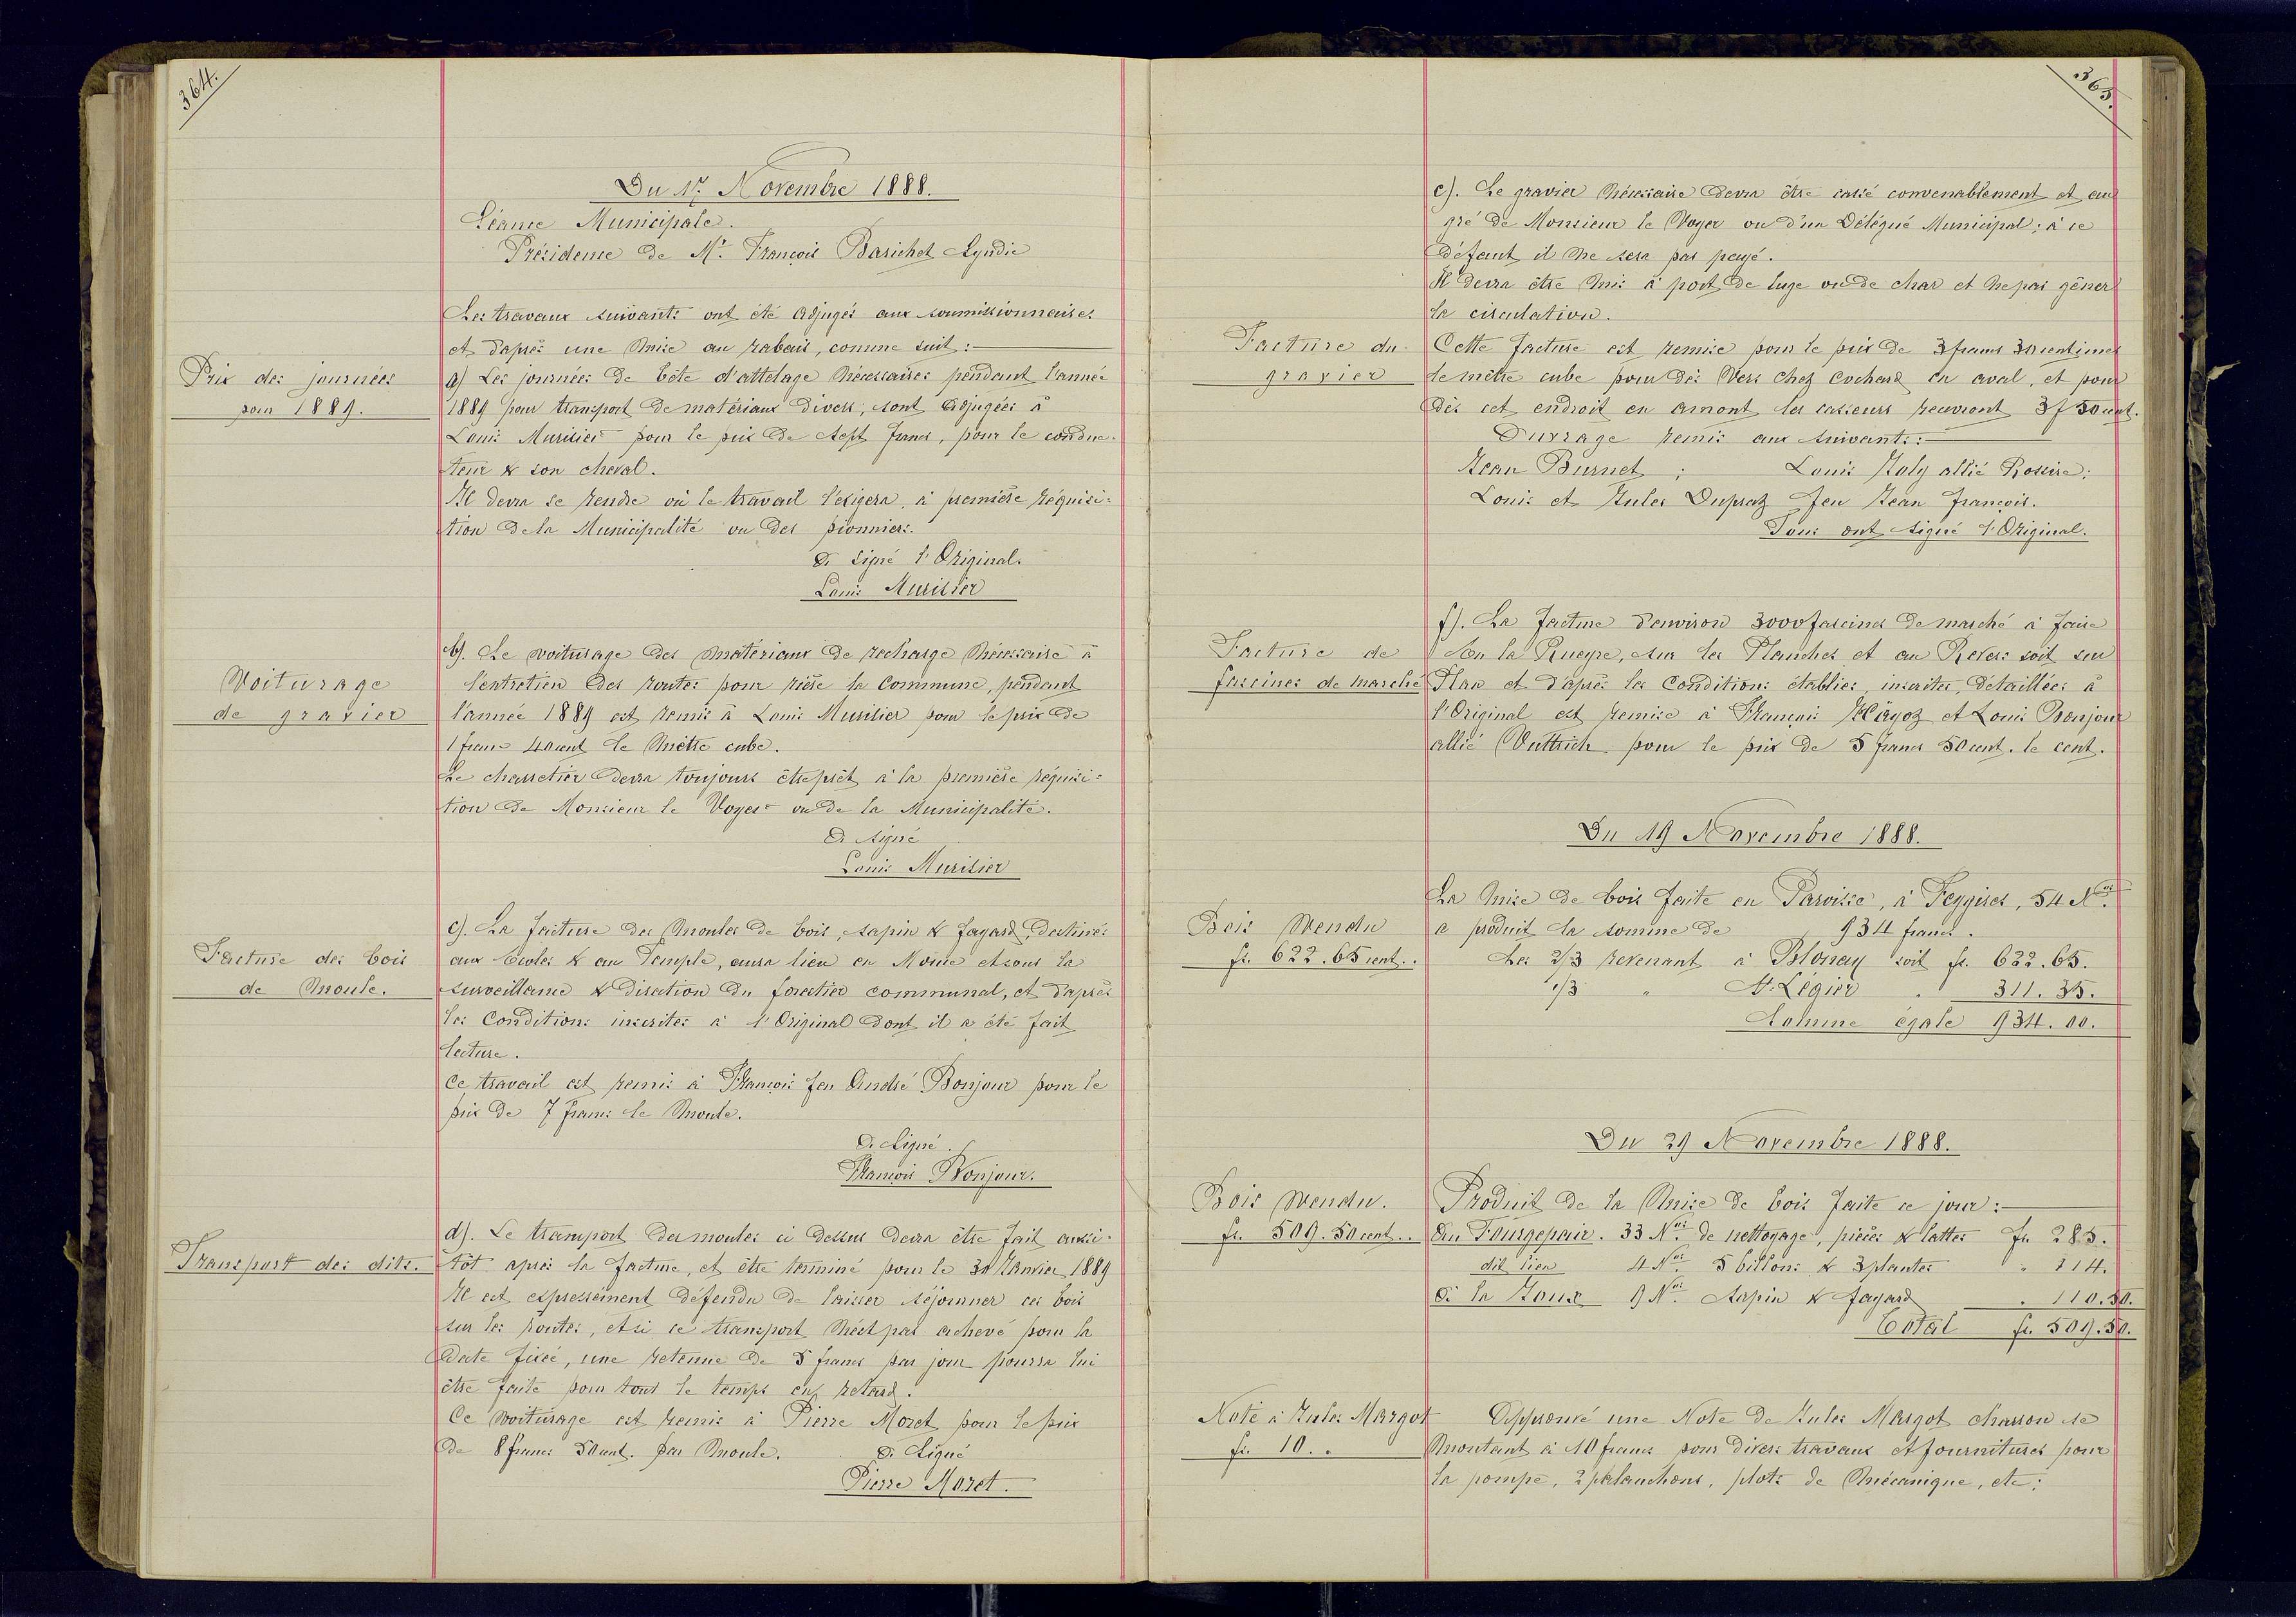 364.
Du 17. Novembre 1888.
Séance Municipale.
Présidence de Mr. François Barichet Syndic
Les travaux suivants ont été adjugés aux soumissionnaires
et d'après une mise au rabais, comme suit :
Prix des journées
pour 1889.
a) Les journées de bête d'attelage nécessaires pendant l'année
1889 pour transport de matériaux divers, sont adjugées à
Louis Murisier pour le prix de sept francs, pour le conduc-
teur & son cheval.
Il devra se rendre où le travail l'exigera, à première réquisi-
tion de la Municipalité ou des pionniers.
D. signé l'Original.
Louis Murisier
Voiturage
de gravier
b). Le voiturage des matériaux de recharge nécessaire à
l'entretien des routes pour rière la Commune, pendant
l'année 1889 est remis à Louis Murisier pour le prix de
1 franc 40 cent le mètre cube.
Le charretier devra toujours être prêt à la première réquisi-
tion de Monsieur le Voyer ou de la Municipalité.
D. signé
Louis Murisier
Facture des bois
de moule.
c). La facture des moules de bois, sapin & fayard, destinés
aux Ecoles & au Temple, aura lieu en Mourie et sous la
surveillance & direction du forestier communal, et d'après
les Conditions inscrites à l'Original dont il a été fait
lecture.
Ce travail est remis à François feu André Bonjour pour le
prix de 7 francs le moule.
D. signé.
François Bonjour.
Transport des dits.
d). Le transport des moules ci dessus devra être fait aussi-
tôt après la facture, et être terminé pour le 30 Janvier 1889
Il est expressément défendu de laisser séjourner ces bois
sur les routes, et si ce transport n'est pas achevé pour la
date fixée, une retenue de 5 francs par jour pourra lui
être faite pour tout le temps en retard.
Ce voiturage est remis à Pierre Moret pour le prix
de 8 francs 50 cent. par moule. D. signé
Pierre Moret.
365.
e). Le gravier nécessaire devra être cassé convenablement et au
gré de Monsieur le Voyer ou d'un Délégué Municipal ; à ce
défaut il ne sera pas payé.
Il devra être mis à port de luge ou de char et ne pas gêner
la circulation.
Facture du
gravier
Cette facture est remise pour le prix de 3 francs 30 centimes
le mètre cube pour dès Vers chez Cochard en aval, et pour
dès cet endroit en amont les casseurs recevront 3 f 50 cent.
Ouvrage remis aux suivants :
Jean Burnet ; Louis Joly allié Rossire ;
Louis et Jules Dupraz feu Jean François.
Tous ont signé l'Original.
Facture de
fascines de marché
f). La facture d'environ 3000 fascines de marché à faire
En la Rueyre, sur les Planches et au Revers soit sur
Plan et d'après les Conditions établies, inscrites, détaillées à
l'Original est remise à François Hägoz et Louis Bonjour
allié Vuttrich pour le prix de 5 francs 50 cent. le cent.
Du 19 Novembre 1888.
Bois vendu
fr. 622.65 cent..
La mise de bois faite en Paroisse, à Feygires, 54 Nos.
a produit la somme de 934 francs.
Les 2/3 revenant à Blonay soit fr. 622.65.
1/3 " St. Légier " 311.35.
Somme égale 934.00.
Du 29 Novembre 1888.
Bois vendu.
fr. 509.50 cent..
Produit de la mise de bois faite ce jour :
Au Fourgepair. 33 Nos. de nettoyage, pièces & lattes fr. 285.
dit lieu 4 Nos. 5 billons & 3 plantes " 114.
A la Joux 9 Nos. sapin & fayard " 110.50.
Total fr. 509.50.
Note à Jules Margot
fr. 10..
Approuvé une Note de Jules Margot charron se
montant à 10 francs pour divers travaux et fournitures pour
la pompe, 2 palanchons, plots de mécanique, etc ;